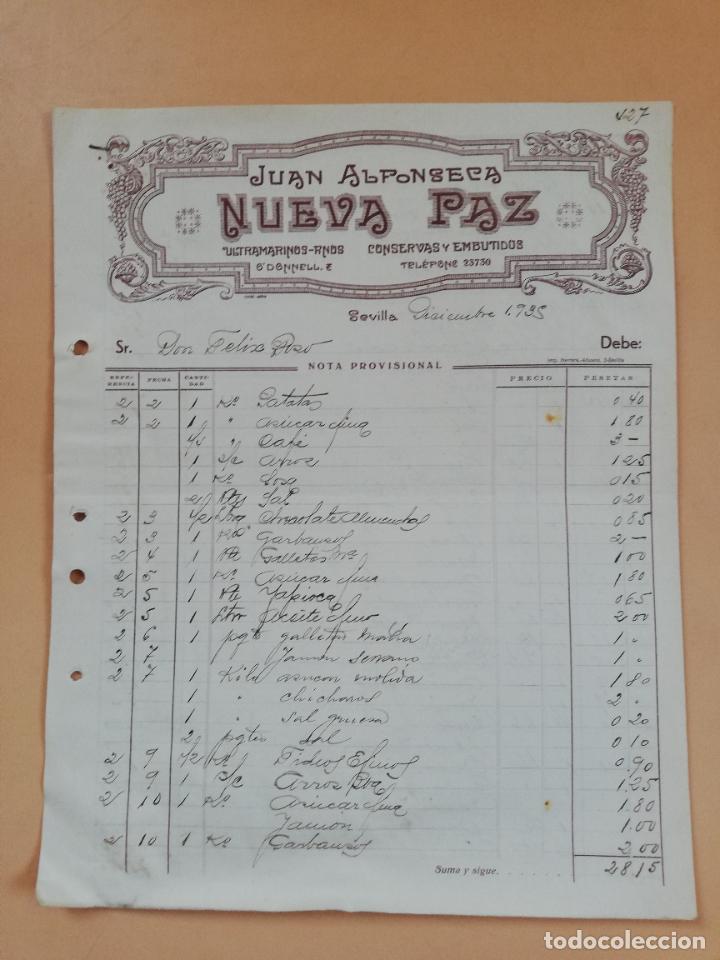 427
JUAN ALFONSECA
NUEVA PAZ
ULTRAMARINOS-FINOS CONSERVAS Y EMBUTIDOS
O'DONNELL, 7 TELÉFONO 23730
Sevilla Diciembre 1935
Sr. Don Felix Pozo Debe:
NOTA PROVISIONAL
REFERENCIA FECHA CANTIDAD PRECIO PESETAS
2 2 1 Ko Patatas 0 40
2 2 1 " Azucar fina 1 80
1/4 " Café 3 —
1 P/c Arros 1 25
1 Ko Sosa 0 15
2 Ptes Sal 0 20
2 3 1/2 Chocolate Almendras 0 85
2 3 1 Ko Garbansos 2 —
2 4 1 Pte Galletas Ma 1 00
2 5 1 Ko Azucar fina 1 80
2 5 1 Pte Tapioca 0 65
2 5 1 Ltro Aceite fino 2 00
2 6 1 pqte galletas maria 1 "
2 7 Jamon serrano 1 "
2 7 1 Kilo azucar molida 1 80
1 " chicharos 2 "
1 " sal gruesa 0 20
2 pqtes sal 0 10
2 9 1/2 Ko Fideos Efinos 0.90
2 9 1 P/c Arros 1.25
2 10 1 Ko Azucar fina 1.80
Jamon 1.00
2 10 1 Ko Garbansos 2 00
Suma y sigue. 28 15
todocoleccion
todocoleccion.net